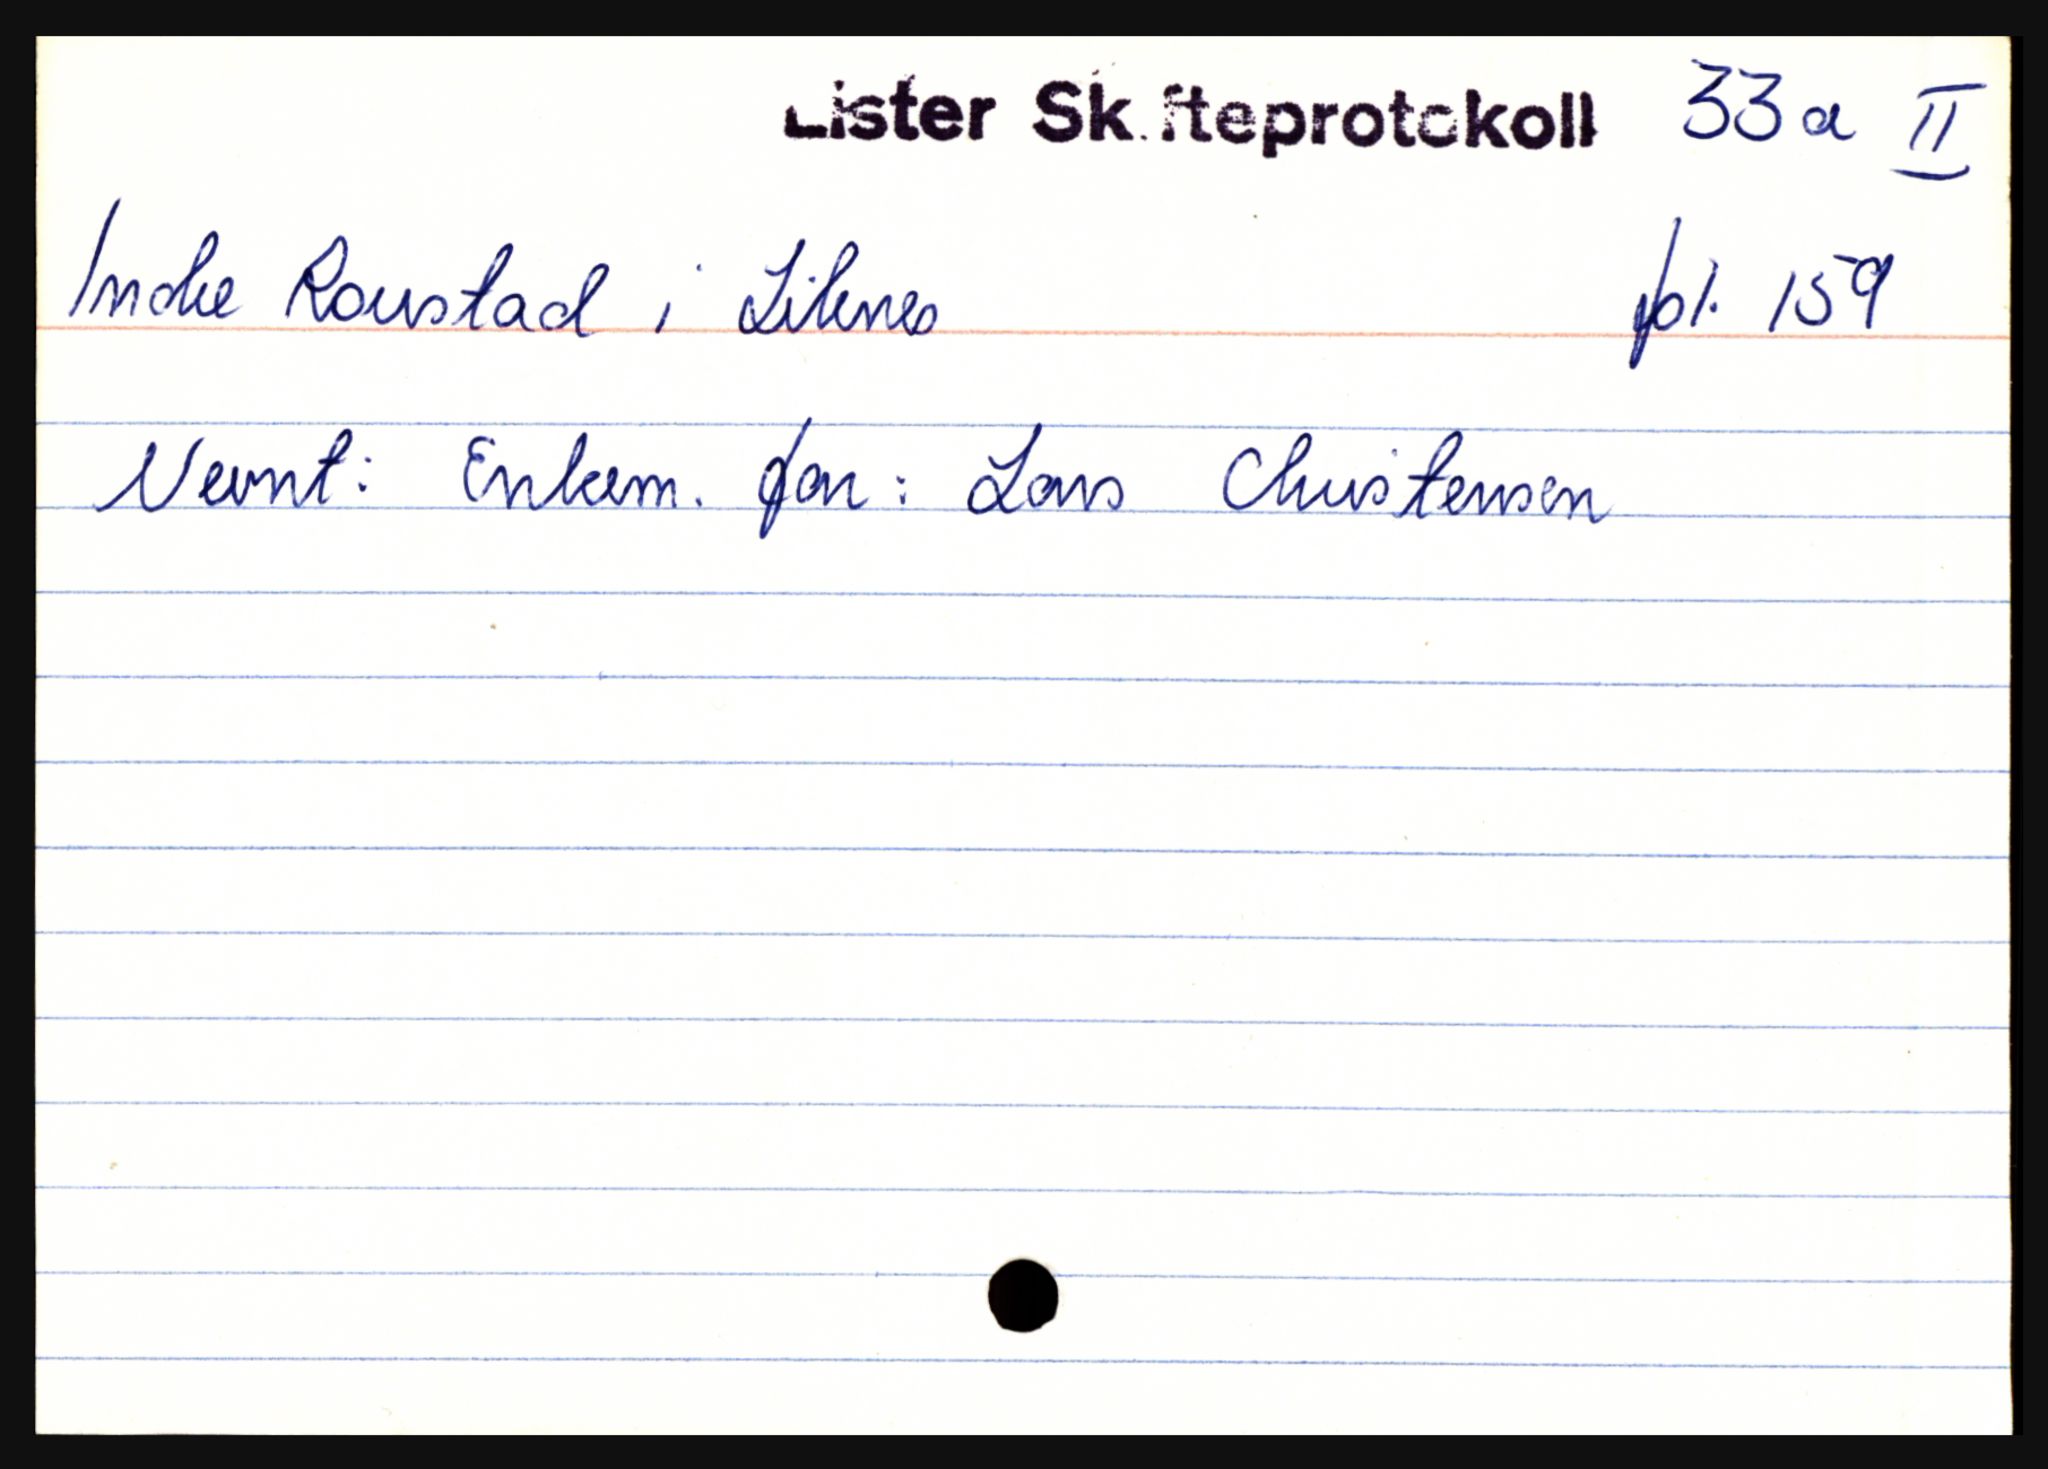 Lister Skifteprotokoll 33a II
Indre Rørstad i Liknes fol. 159
Nevnt: Enkem. far: Lars Christensen